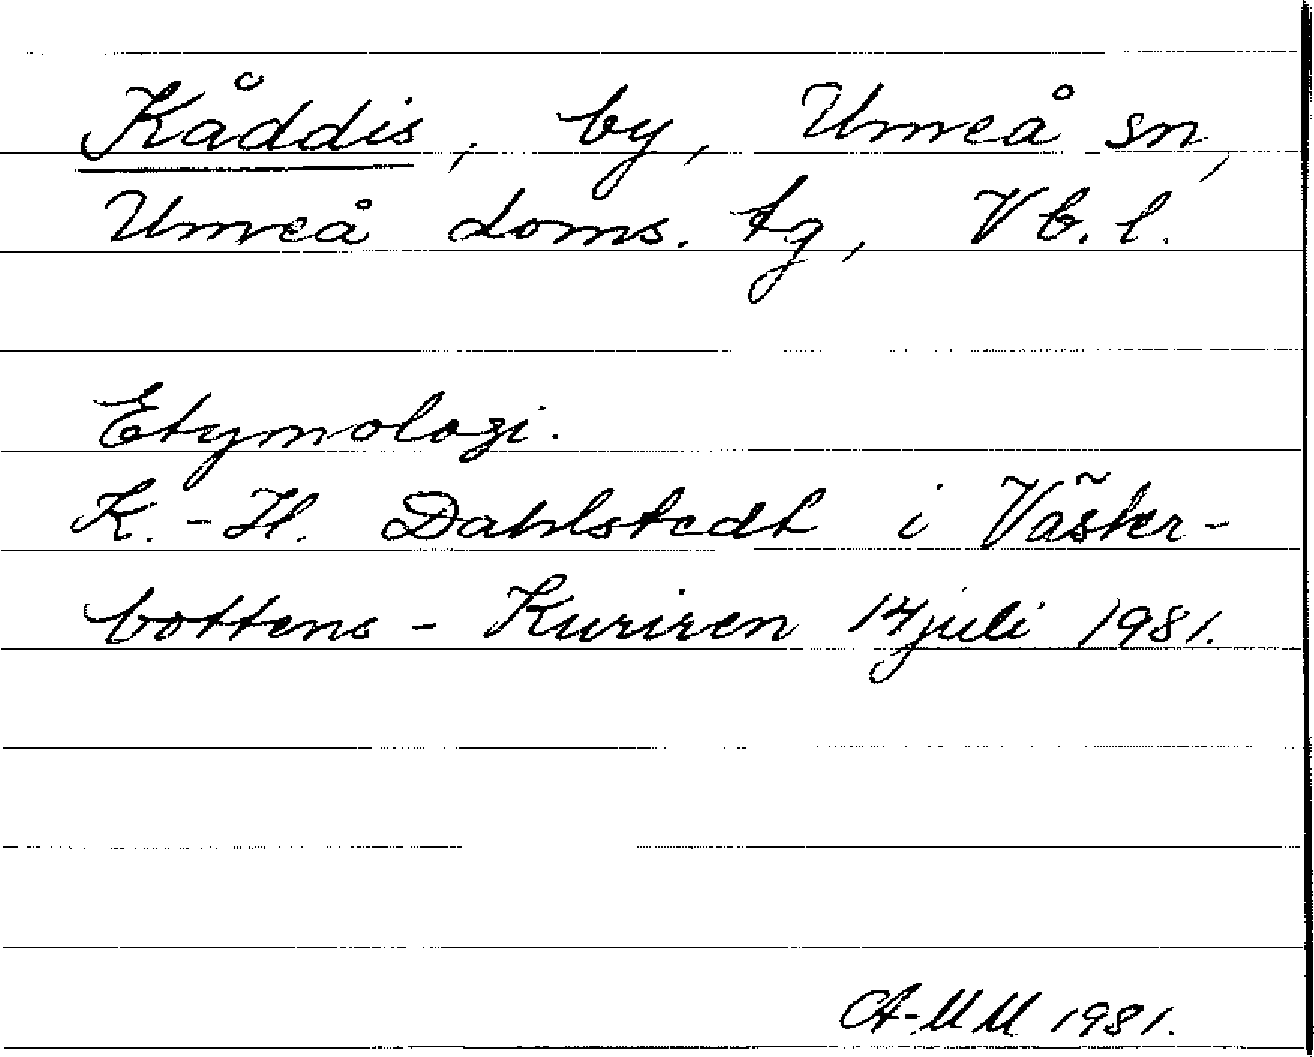 Kåddis, by, Umeå sn,
Umeå doms. tg, Vb. l.
Etymologi.
K.-H. Dahlstedt i Väster-
bottens-Kuriren 14 juli 1981.
A-MM 1981.